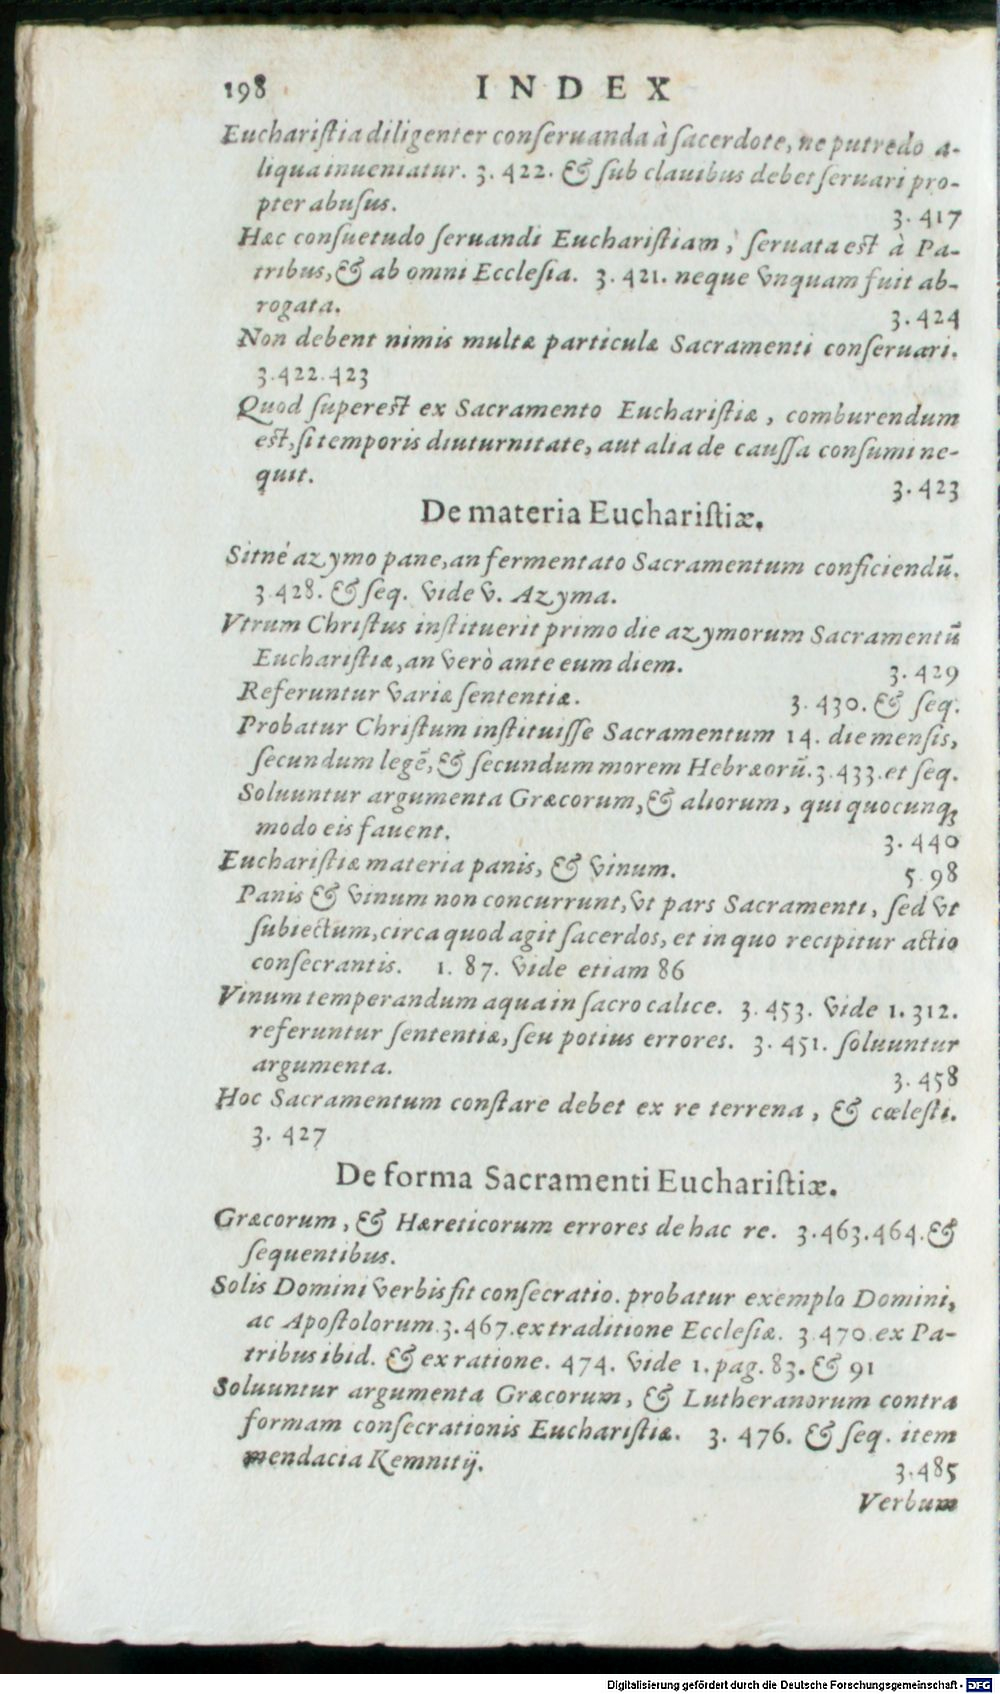 198 INDEX
Euchariſtia diligenter conſeruanda à ſacerdote, ne putredo a-
liqua inueniatur. 3. 422. & ſub clauibus debet ſeruari pro-
pter abuſus. 3. 417
Hæc conſuetudo ſeruandi Euchariſtiam, ſeruata est à Pa-
tribus, & ab omni Eccleſia. 3. 421. neque vnquam fuit ab-
rogata. 3. 424
Non debent nimis multæ particulæ Sacramenti conſeruari.
3. 422. 423
Quod ſuperest ex Sacramento Euchariſtiæ, comburendum
est, ſi temporis diuturnitate, aut alia de cauſſa conſumi ne-
quit. 3. 423
De materia Euchariſtiæ.
Sitné azymo pane, an fermentato Sacramentum conficiendū.
3. 428. & ſeq. vide v. Azyma.
Vtrum Chriſtus inſtituerit primo die azymorum Sacramentū
Euchariſtiæ, an verò ante eum diem. 3. 429
Referuntur variæ ſententiæ. 3. 430. & ſeq.
Probatur Chriſtum inſtituiſſe Sacramentum 14. die menſis,
ſecundum legē, & ſecundum morem Hebræorū. 3. 433. et ſeq.
Soluuntur argumenta Græcorum, & aliorum, qui quocunq́;
modo eis fauent. 3. 440
Euchariſtiæ materia panis, & vinum. 5. 98
Panis & vinum non concurrunt, vt pars Sacramenti, ſed vt
ſubiectum, circa quod agit ſacerdos, et in quo recipitur actio
conſecrantis. 1. 87. vide etiam 86
Vinum temperandum aqua in ſacro calice. 3. 453. vide 1. 312.
referuntur ſententiæ, ſeu potius errores. 3. 451. ſoluuntur
argumenta. 3. 458
Hoc Sacramentum conſtare debet ex re terrena, & cœleſti.
3. 427
De forma Sacramenti Euchariſtiæ.
Græcorum, & Hæreticorum errores de hac re. 3. 463. 464. &
ſequentibus.
Solis Domini verbis fit conſecratio. probatur exemplo Domini,
ac Apoſtolorum. 3. 467. ex traditione Eccleſiæ. 3. 470. ex Pa-
tribus ibid. & ex ratione. 474. vide 1. pag. 83. & 91
Soluuntur argumenta Græcorum, & Lutheranorum contra
formam conſecrationis Euchariſtiæ. 3. 476. & ſeq. item
mendacia Kemnitij. 3. 485
Verbum
Digitalisierung gefördert durch die Deutsche Forschungsgemeinschaft - DFG